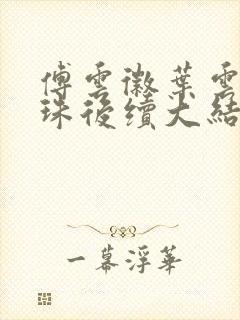 傅雲徽葉雲
珠後續大結
一幕浮華